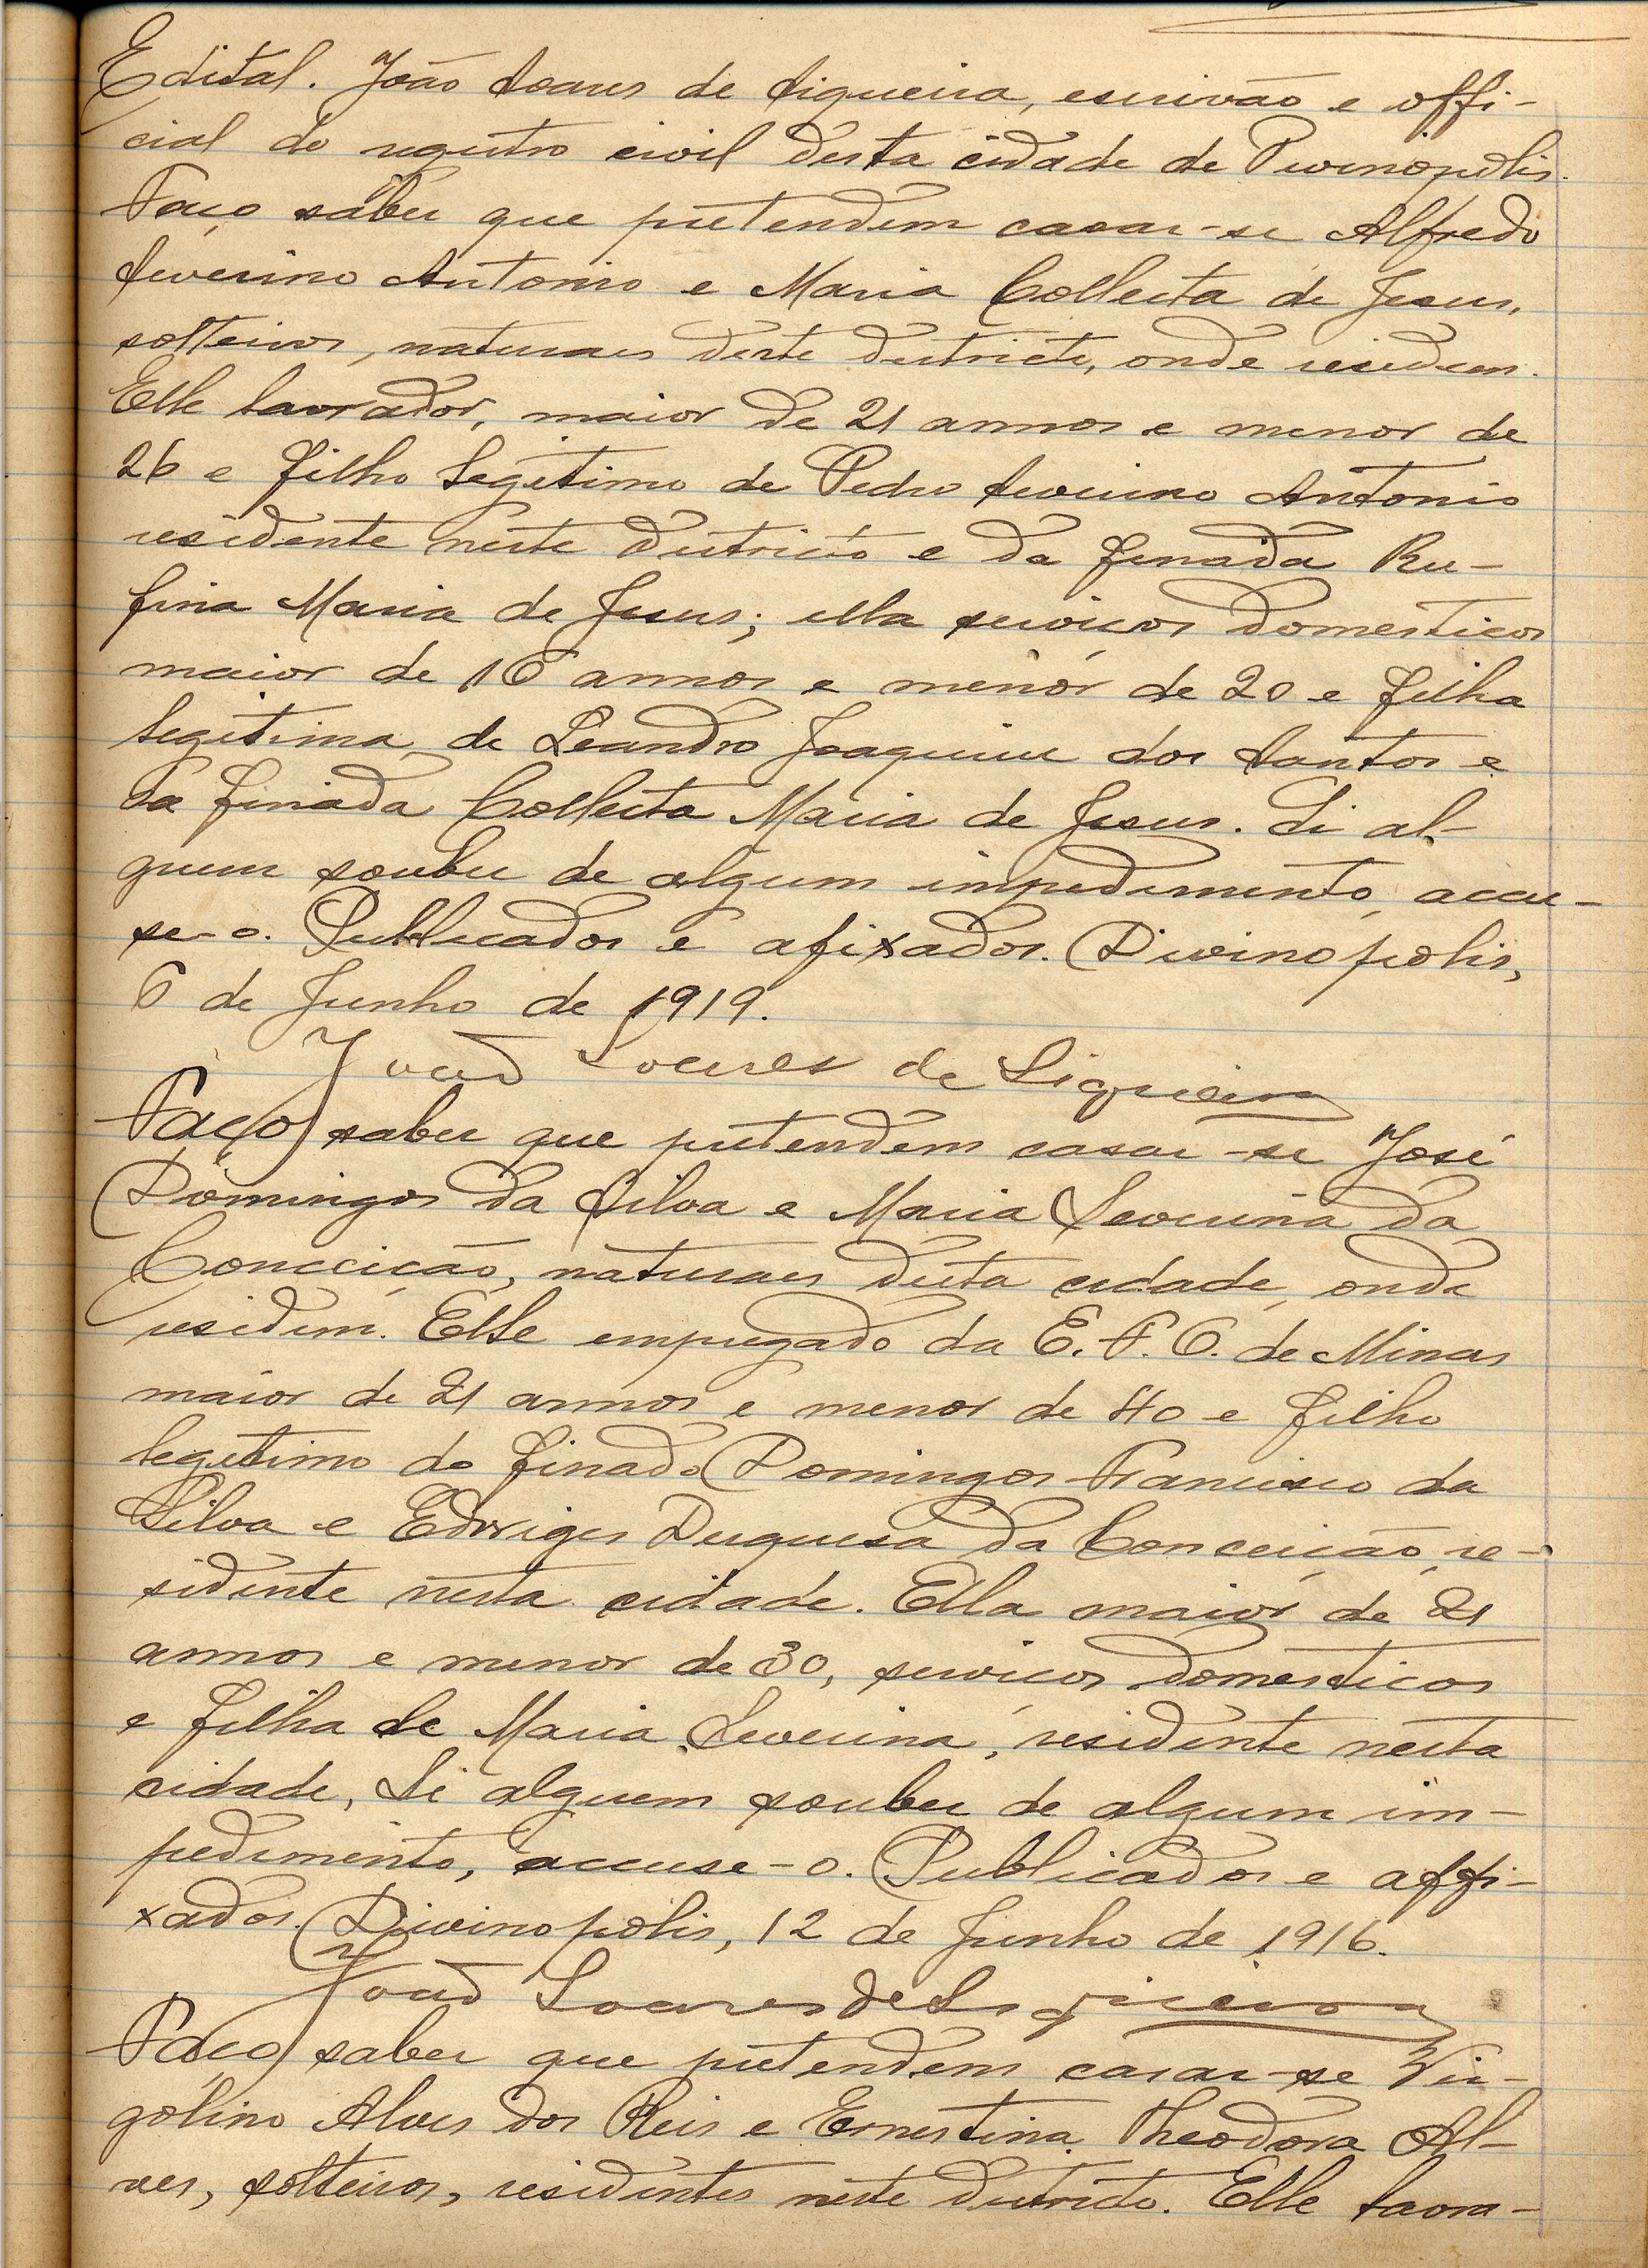 Edital. João Soares de Siqueira, escrivão e offi-
cial do registro civil desta cidade de Divinopolis.
Faço saber que pretendem casar-se Alfredo
Severino Antonio e Maria Colleita de Jesus,
solteiros, naturaes deste districto, onde residem.
Elle lavrador, maior de 21 annos e menor de
26 e filho legitimo de Pedro Severino Antonio
residente neste districto e da finada Ru-
fina Maria de Jesus; ella serviços domesticos
maior de 16 annos e menor de 20 e filha
legitima de Leandro Joaquim dos Santos e
da finada Colleita Maria de Jesus. Si al-
guem souber de algum impedimento, accu-
se-o. Publicados e afixados. Divinopolis,
6 de Junho de 1919.
João Soares de Siqueira
Faço saber que pretendem casar-se José
Domingos da Silva e Maria Severina da
Conceição, naturaes desta cidade, onde
residem. Elle empregado da E. F. O. de Minas
maior de 21 annos e menor de 40 e filho
legitimo do finado Domingos Francisco da
Silva e Edwiges Duqueza da Conceição, re-
sidente nesta cidade. Ella maior de 21
annos e menor de 30, serviços domesticos
e filha de Maria Severina, residente nesta
cidade, Si alguem souber de algum im-
pedimento, accuse-o. Publicados e affi-
xados. Divinopolis, 12 de Junho de 1916.
João Soares de Siqueira
Faço saber que pretendem casar-se Vir-
golino Alves dos Reis e Ernestina Theodora Al-
ves, solteiros, residentes neste districto. Elle lavra-